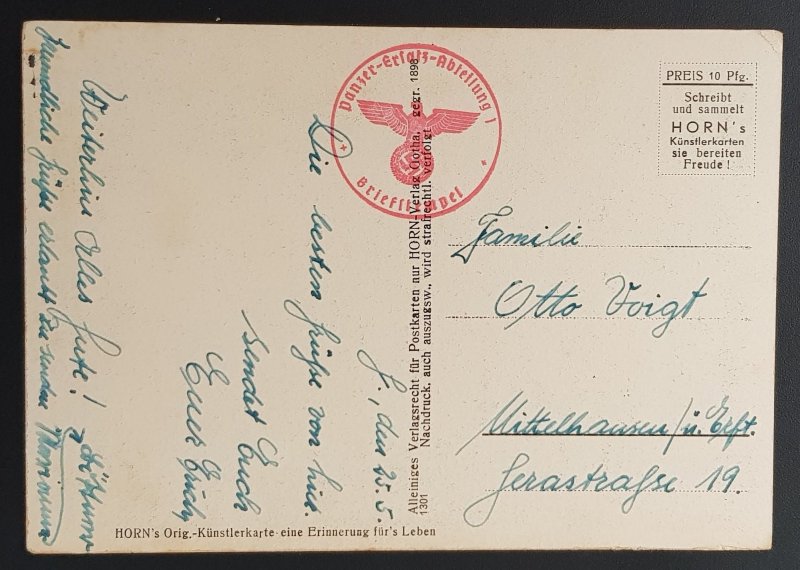 Panzer-Ersatz-Abteilung 1
Briefstempel
PREIS 10 Pfg.
Schreibt
und sammelt
HORN's
Künstlerkarten
sie bereiten
Freude!
Familie
Otto Voigt
Mittelhausen/ü. Erft.
Gerastraße 19.
den 25.5.
Die besten Grüße von hier
sendet Euch
Euer
Weiterhin Alles Gute!
freundliche Grüße erlaubt zu senden
Alleiniges Verlagsrecht für Postkarten nur HORN-Verlag Gotha, gegr. 1898
Nachdruck, auch auszugsw., wird strafrechtl. verfolgt
1301
HORN's Orig.-Künstlerkarte-eine Erinnerung für's Leben